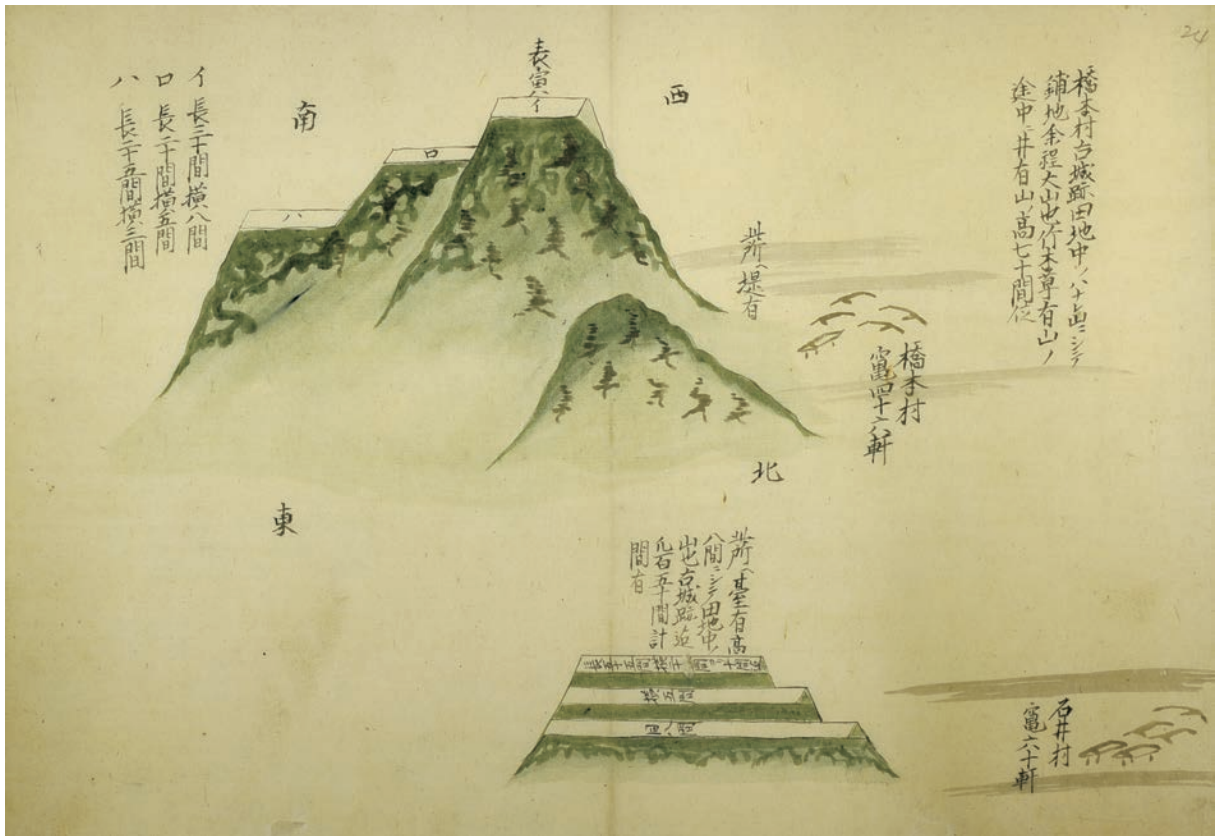 24
橋本村古城跡田地中ノ八十間ニシテ
鋪地余程大山也竹木草有山ノ
途中ニ井有山ノ高七十間位
西
表寅ハ
イ
ロ
ハ
南
イ 長三十間横八間
ロ 長二十間横五間
ハ 長二十五間横三間
此所ハ堤有
橋本村
竃四十六軒
北
東
此所ハ臺有高
八間ニシテ田地中ノ
出也古城跡迄
凡百五十間計
間有
横五間
石井村
竃六十軒